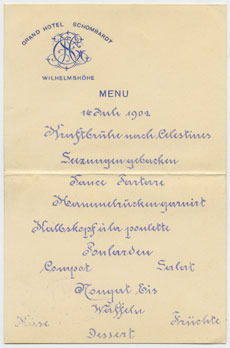 GRAND HOTEL SCHOMBARDT
WILHELMSHÖHE
MENU
16 Juli 1902
Kraftbrühe nach Celestines
Seezungen gebacken
Sauce Tartare
Hammelrücken garnirt
Kalbskopf à la poulette
Poularden
Compot Salat
Nougat Eis
Waffeln
Käse Früchte
Dessert